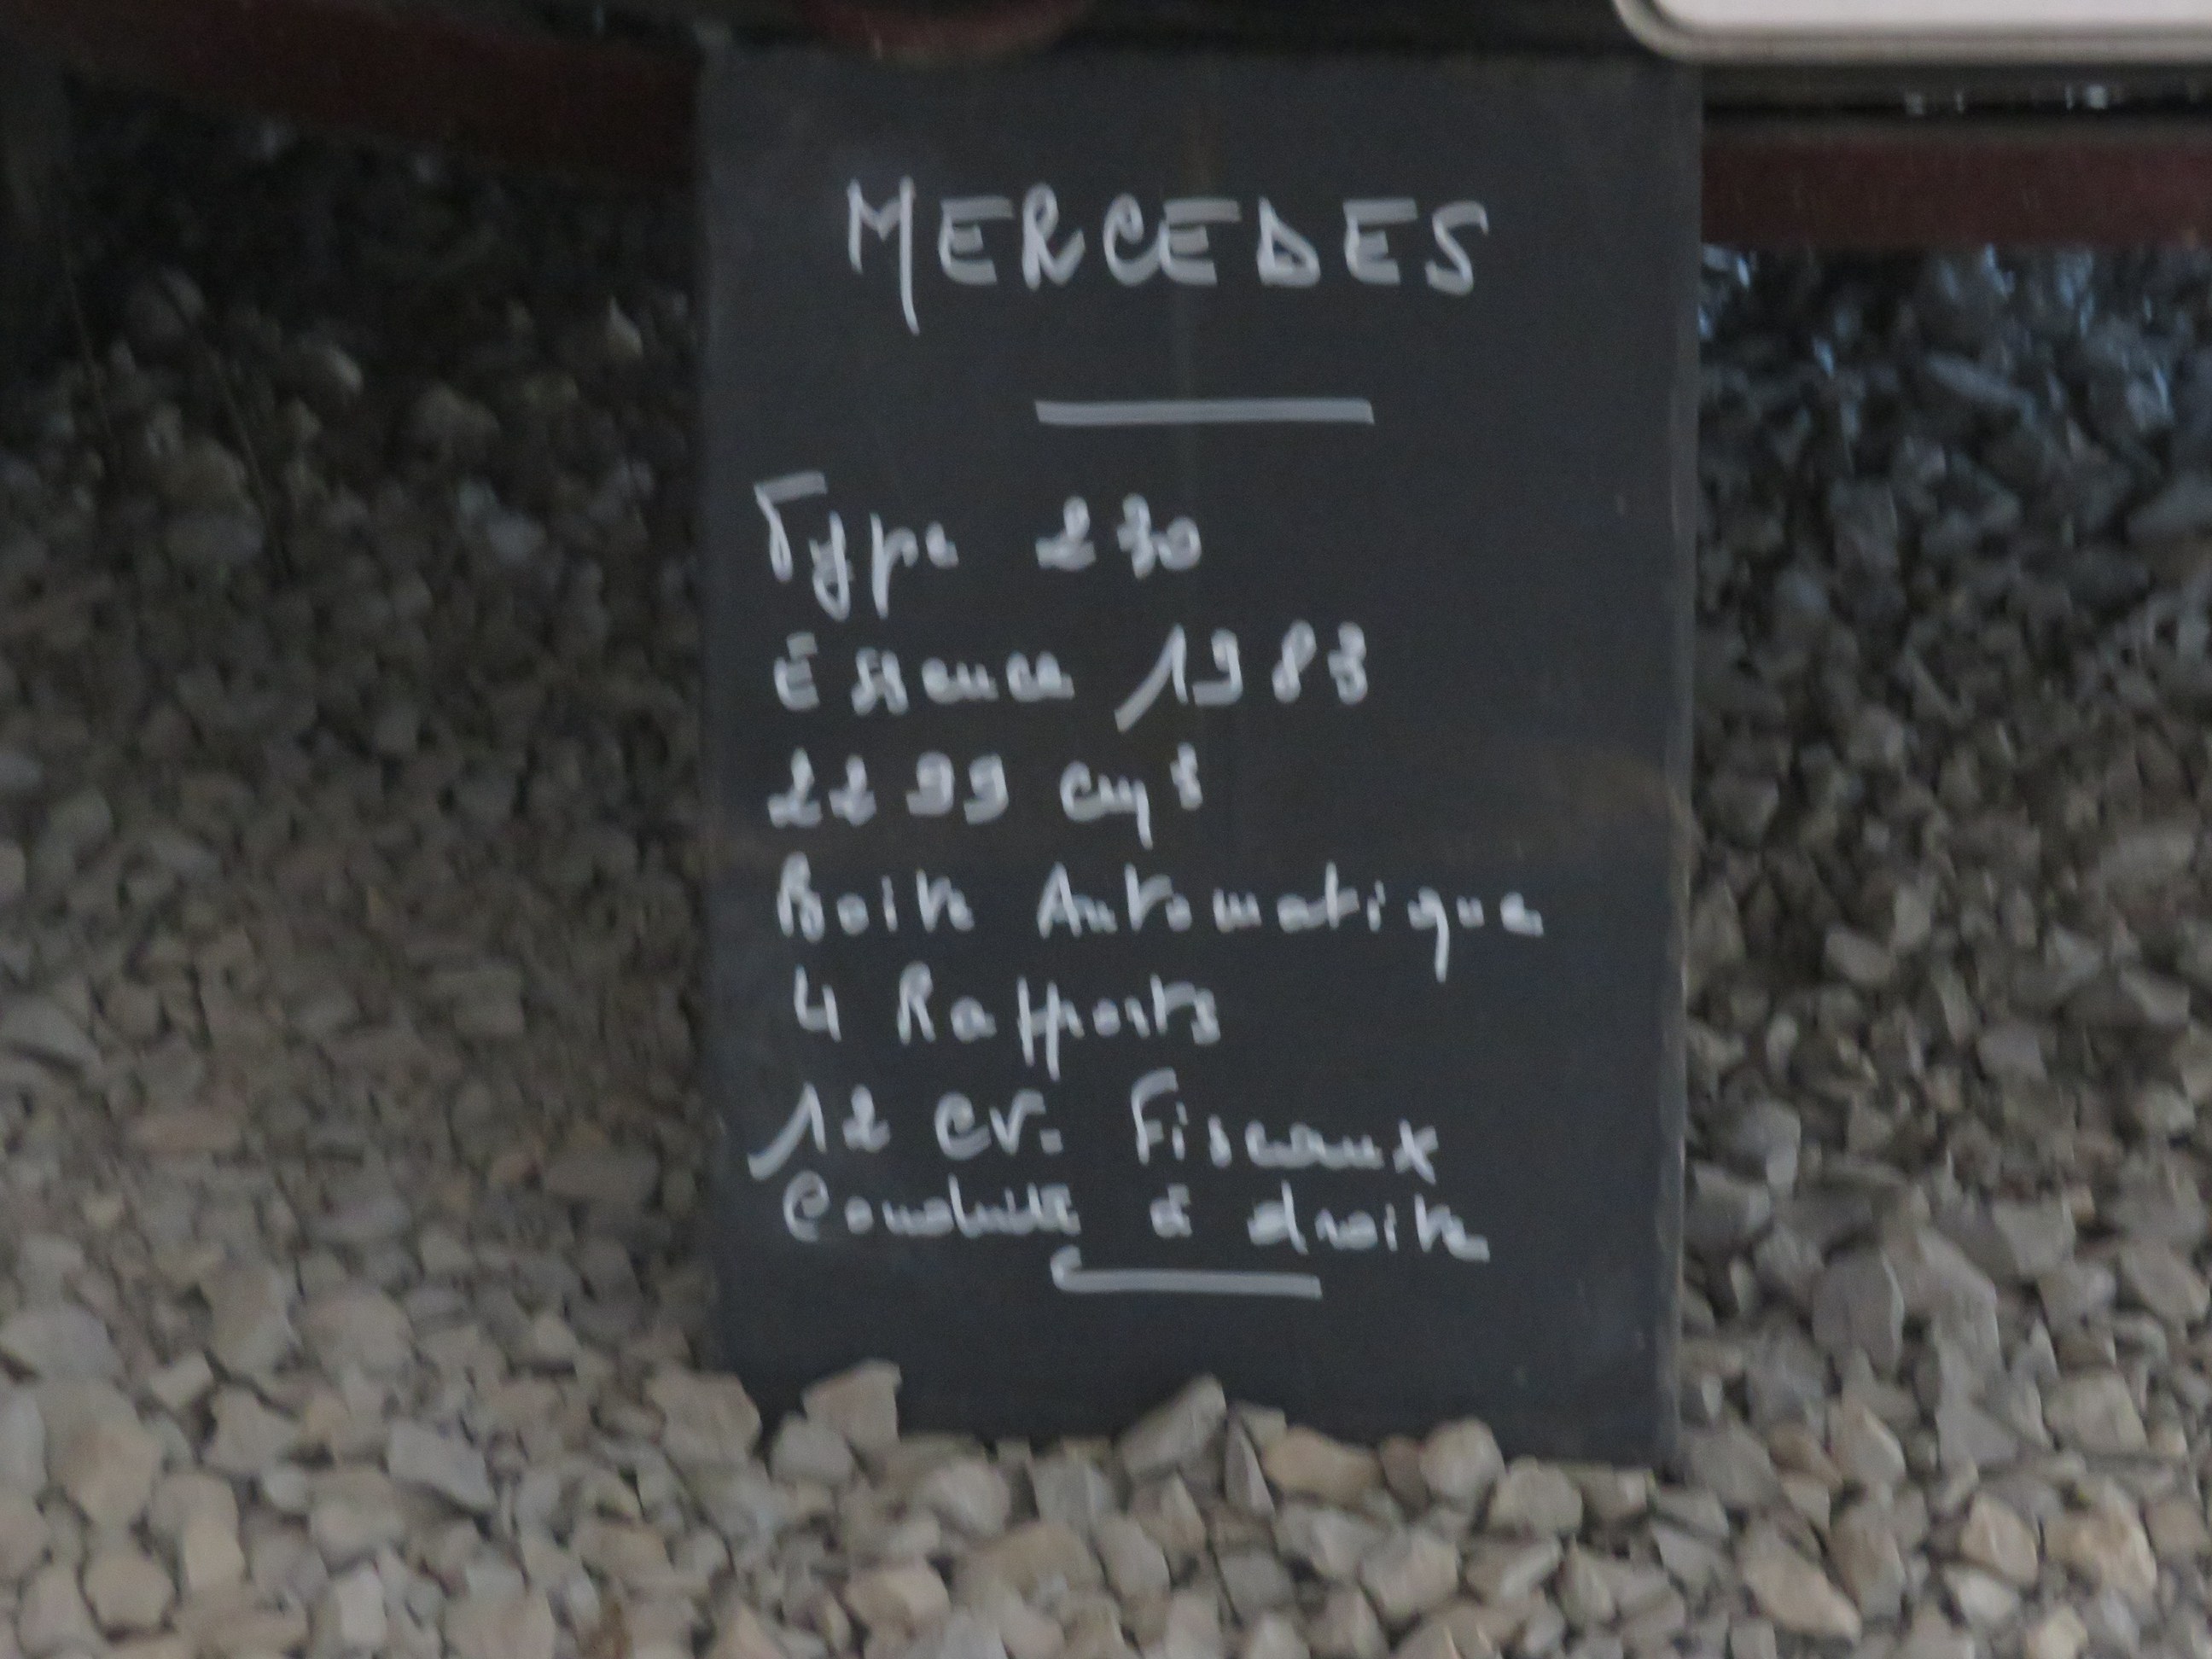 MERCEDES
Type 230
Essence 1983
2299 cm3
Boite Automatique
4 Rapports
12 CV. Fiscaux
Conduite à droite